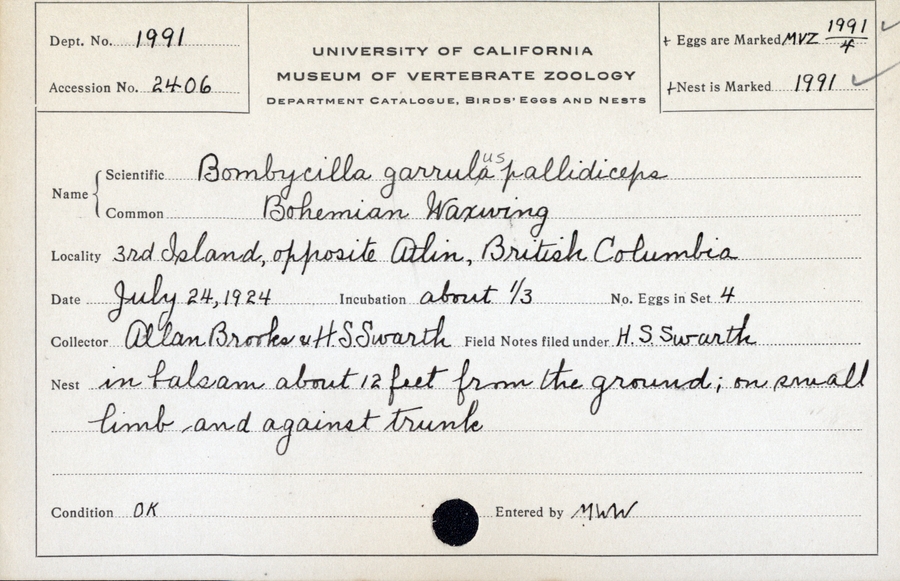 Dept. No. 1991
Accession No. 2406
UNIVERSITY OF CALIFORNIA
MUSEUM OF VERTEBRATE ZOOLOGY
DEPARTMENT CATALOGUE, BIRDS' EGGS AND NESTS
+ Eggs are Marked MVZ 1991/4 ✓
+ Nest is Marked 1991 ✓
Name { Scientific Bombycilla garrula us pallidiceps
Common Bohemian Waxwing
Locality 3rd Island, opposite Atlin, British Columbia
Date July 24, 1924 Incubation about 1/3 No. Eggs in Set 4
Collector Allan Brooks & H.S. Swarth Field Notes filed under H. S. Swarth
Nest in balsam about 12 feet from the ground; on small
limb and against trunk
Condition OK Entered by MWW